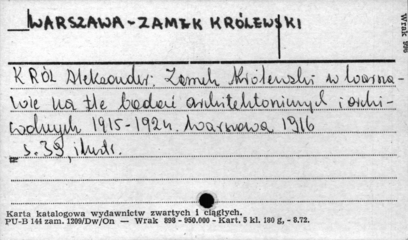 WARSZAWA-ZAMEK KRÓLEWSKI
KRÓL Aleksander: Zamek Królewski w Warsza-
wie na tle badań architektonicznych i archi-
walnych 1915-1924. Warszawa 1916
s. 39, ilustr.
Karta katalogowa wydawnictw zwartych i ciągłych.
PU-B 144 zam. 1209/Dw/On — Wrak 898 - 950.000 - Kart. 5 kl. 180 g, - 8.72.
Wrak 898